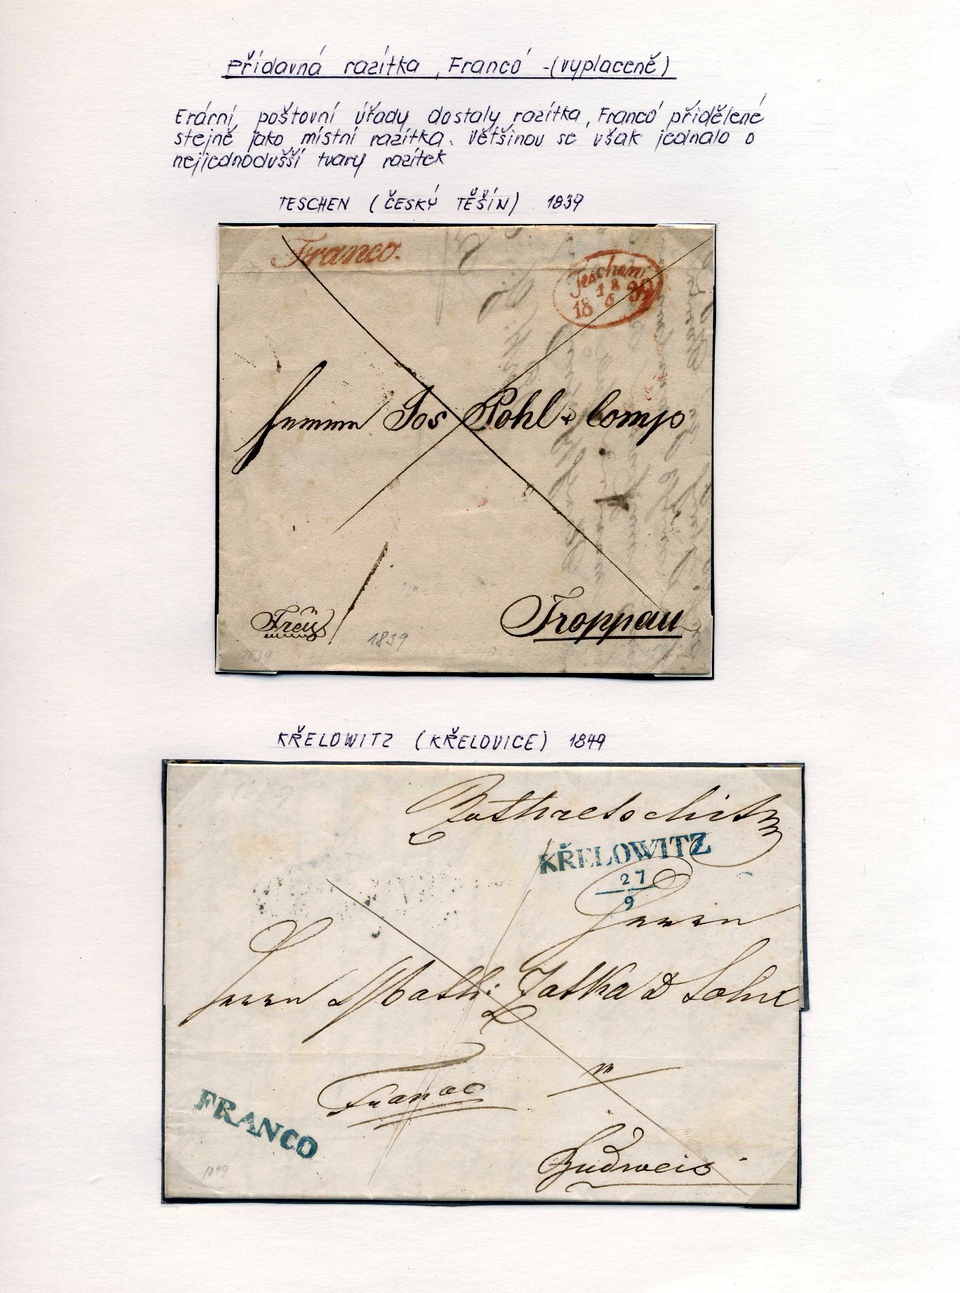 Přídavná razítka „Franco“ - (vyplaceně)
Erární poštovní úřady dostaly razítka „Franco“ přidělené
stejně jako místní razítka. Většinou se však jednalo o
nejjednodušší tvary razítek
TESCHEN (ČESKÝ TĚŠÍN) 1839
Franco.
Teschen
18 6 39
Herrn Jos Pohl & Comp
Troppau
Frey
1839
KŘELOWITZ (KŘELOVICE) 1849
KŘELOWITZ
27
9
Herrn
Herrn Math: Jatka & Sohn
Franco
FRANCO
Budweis
1849